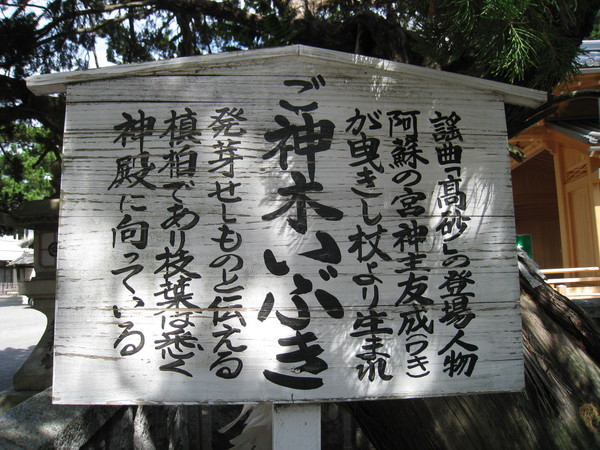 謡曲「高砂」の登場人物
阿蘇の宮神主友成(つき)
が曳きし杖より生まれ
ご神木いぶき
発芽せしものと伝える
槙柏であり枝葉は悉く
神殿に向っている